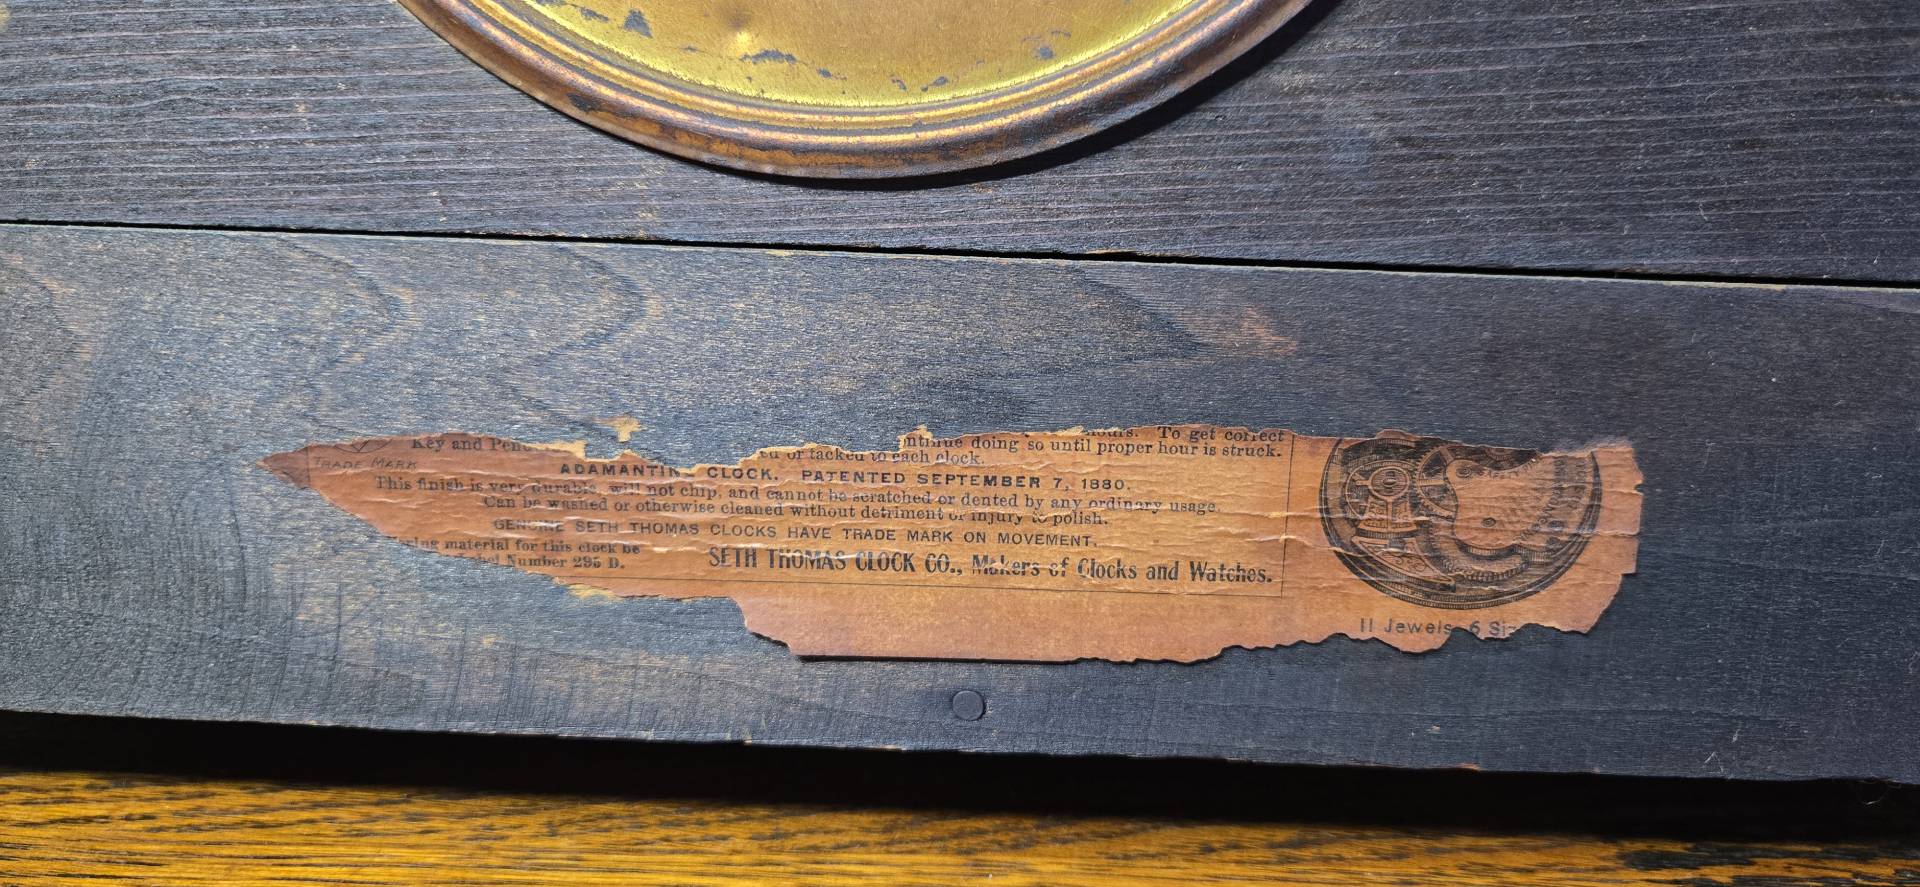 Key and
TRADE MARK
To get correct
ntinue doing so until proper hour is struck.
or tacked to each clock.
ADAMANTIN CLOCK. PATENTED SEPTEMBER 7, 1880.
This finish is very durable, will not chip, and cannot be scratched or dented by any ordinary usage.
Can be washed or otherwise cleaned without detriment or injury to polish.
GENUINE SETH THOMAS CLOCKS HAVE TRADE MARK ON MOVEMENT.
material for this clock be
Number 295 D.
SETH THOMAS CLOCK CO., Makers of Clocks and Watches.
11 Jewels 6